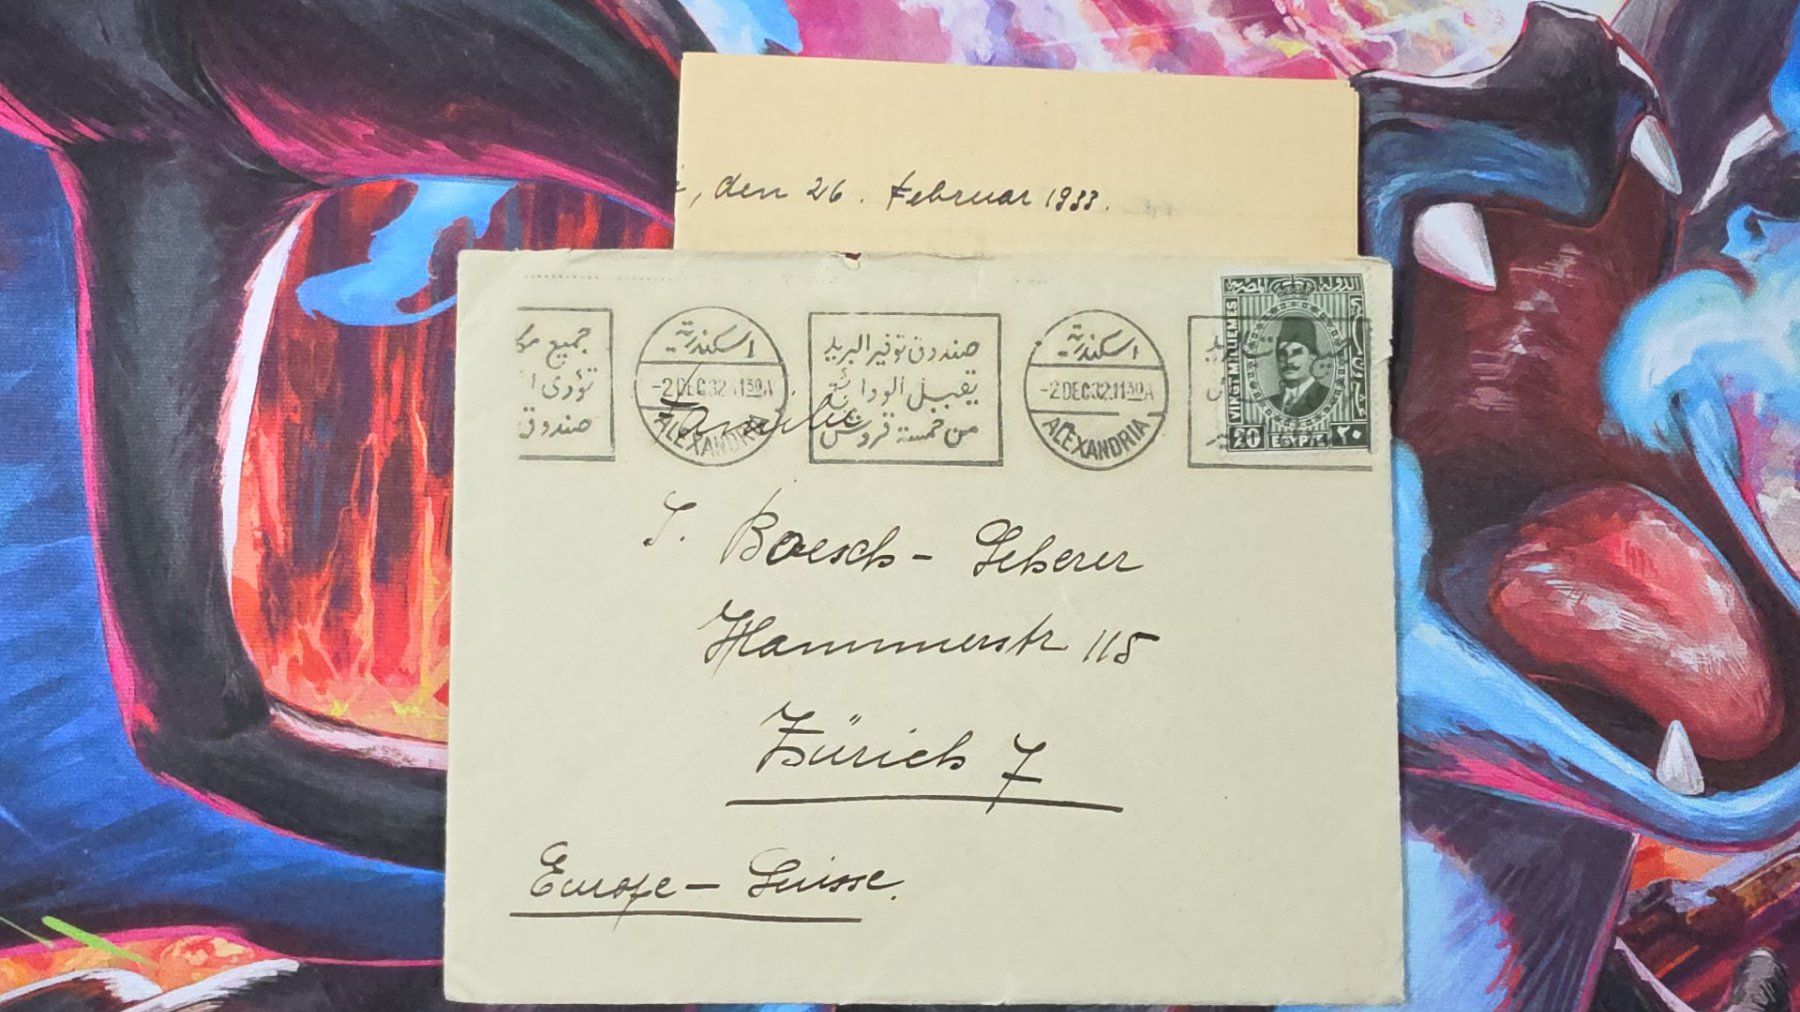 , den 26. Februar 1933.
جميع
تؤدى
صندوق
اسكندرية
-2 DEC.32.1130A
ALEXANDRIA
صندوق توفير البريد
يقبل الودائع
من خمسة قروش
اسكندرية
-2 DEC.32.1130A
ALEXANDRIA
الدولة المصرية
VINGT MILLIEMES
20 EGYPTE ٢٠
Familie
J. Boesch-Scherer
Hammerstr 115
Zürich 7
Europe - Suisse.